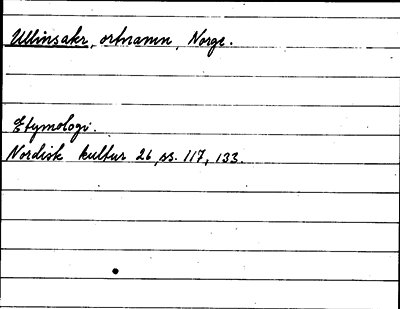 Ullinsakr, ortnamn, Norge.
Etymologi.
Nordisk kultur 26, ss. 117, 133.